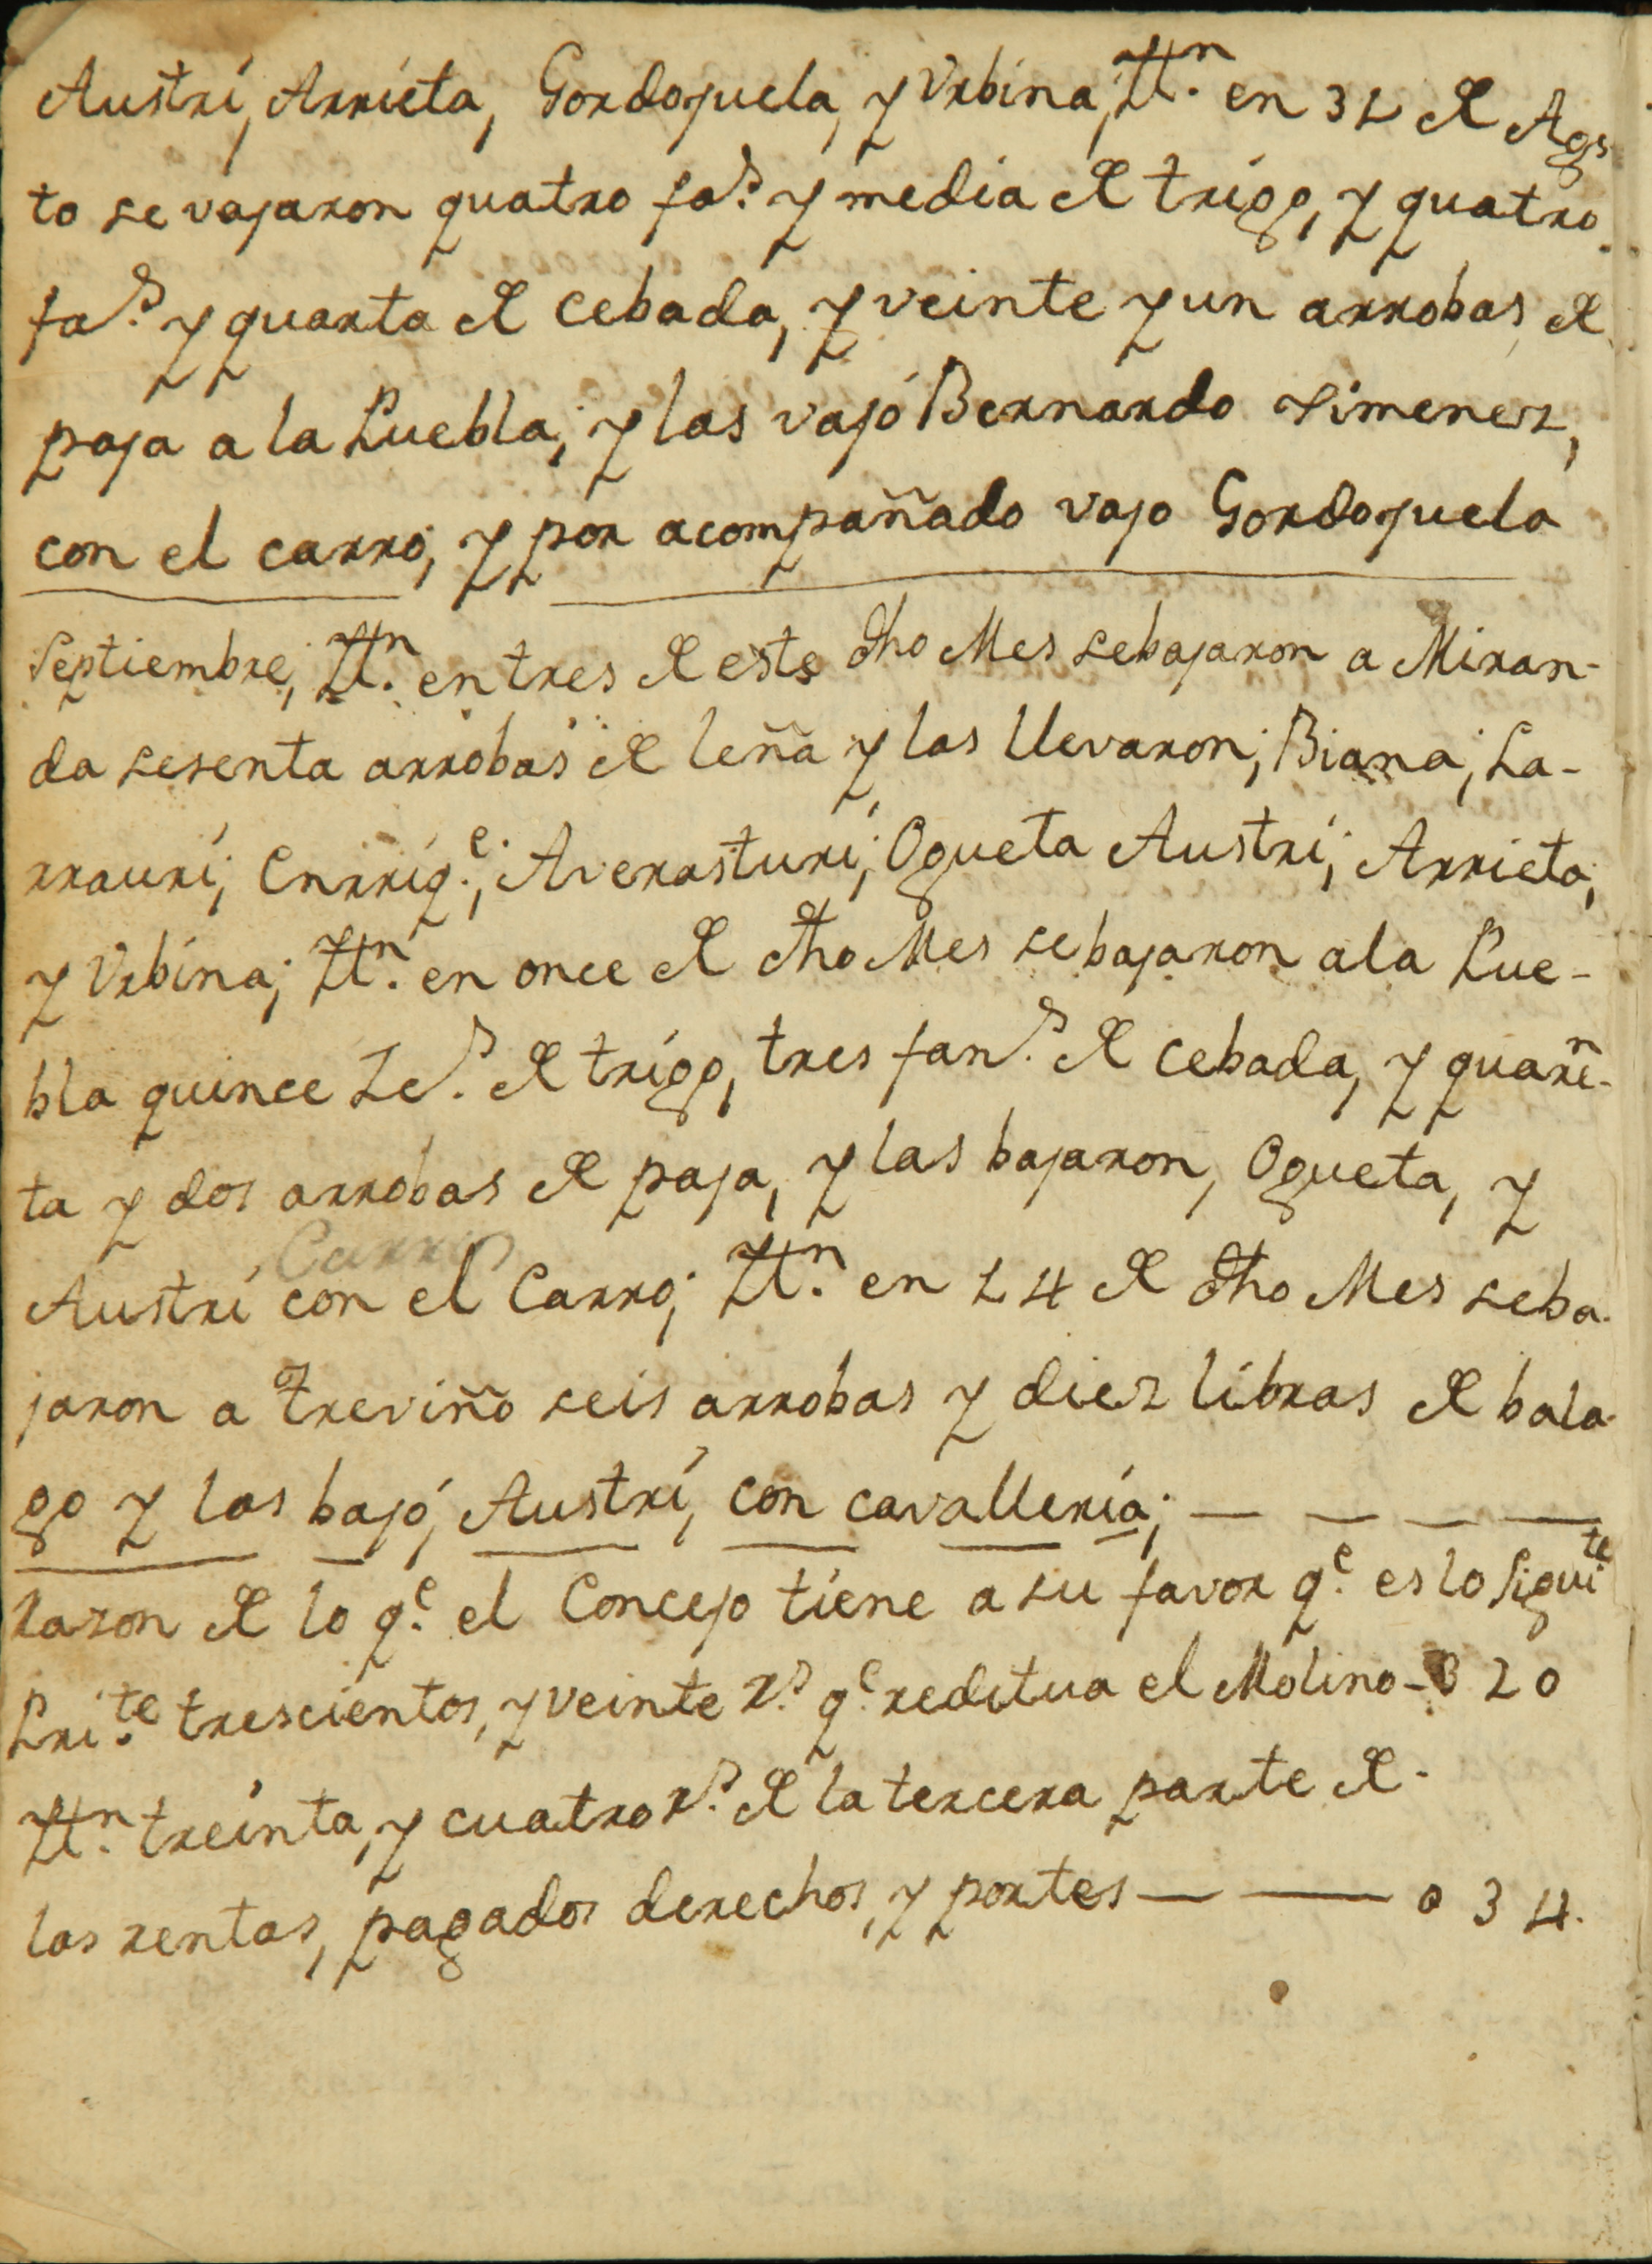 Austri, Arrieta, Gordojuela, y Vrbina; Ittn. en 31 de Agos
to se vajaron quatro fas. y media de trigo, y quatro
fas. y quarta de cebada, y veinte y un arrobas de
paja a la Puebla; y las vajó Bernardo Ximenez,
con el carro; y por acompañado vajo Gordojuela
Septiembre; Ittn. en tres de este dho Mes se bajaron a Miran-
da sesenta arrobas de leña y las llevaron; Biana; La-
rrauri; Enrriqe.; Averasturi; Ogueta Austri; Arrieta;
y Vrbina; Ittn. en once de dho Mes se bajaron a la Pue-
bla quince Ces. de trigo, tres fans. de cebada, y quaren-
ta y dos arrobas de paja, y las bajaron, Ogueta, y
Austri con el Carro; Ittn. en 14 de dho Mes se ba-
jaron a Treviño seis arrobas y diez libras de bala-
go y las bajó, Austri, con cavalleria;
Razon de lo qe. el Concejo tiene a su favor qe. es lo siguite
Prite. trescientos, y veinte rs. qe. reditua el Molino - 320
Ittn. treinta, y cuatro rs. de la tercera parte de
las rentas, pagados derechos, y portes — — 034.